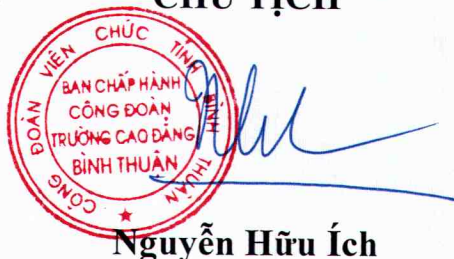 CHỦ TỊCH
CÔNG ĐOÀN VIÊN CHỨC TỈNH BÌNH THUẬN
BAN CHẤP HÀNH
CÔNG ĐOÀN
TRƯỜNG CAO ĐẲNG
BÌNH THUẬN
Nguyễn Hữu Ích